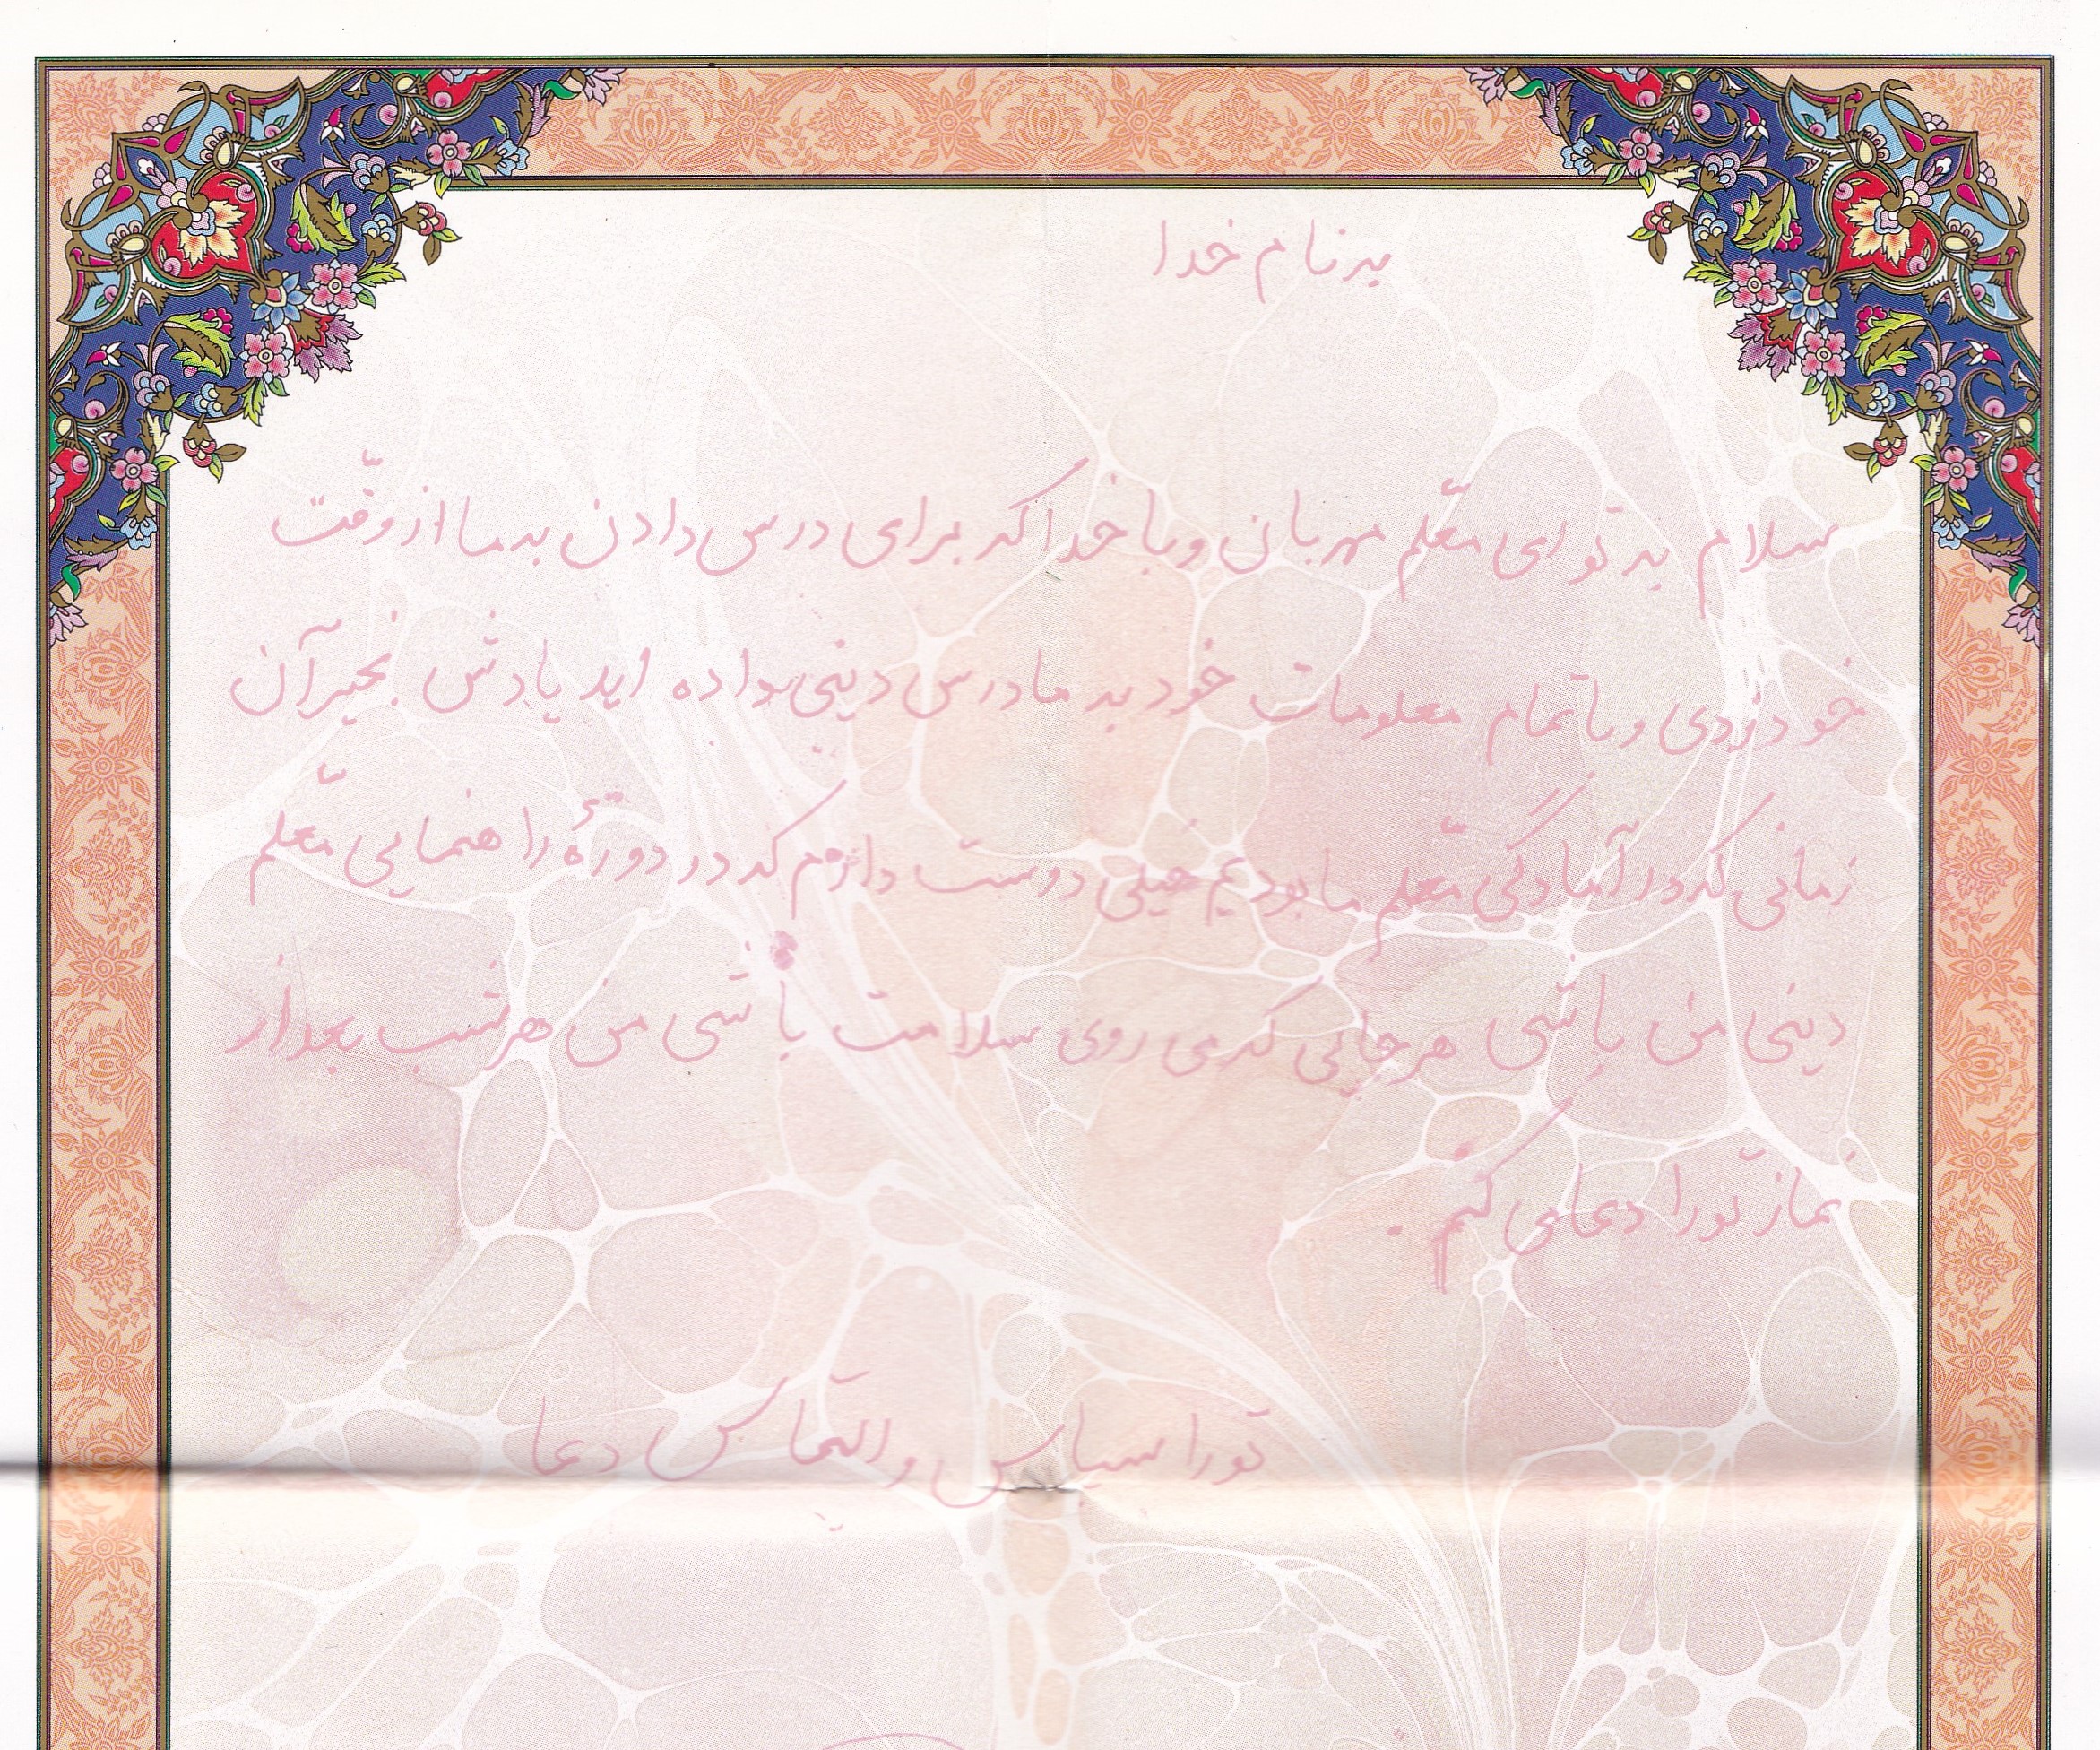 به نام خدا
سلام به تو ای معّلم مهربان و با خدا که برای درس دادن به ما از وقّت
خود زدی و با تمام معلومات خود به ما درس دینی داده اید یادش بخیر آن
زمانی که در آمادگی معّلم ما بودیم خیلی دوست دارم که در دورهٔ راهنمایی معّلم
دینی من باشی هر جایی که می روی سلامت باشی من هر شب بعد از
نماز تو را دعا می کنم.
تو را سپاس و التماس دعا